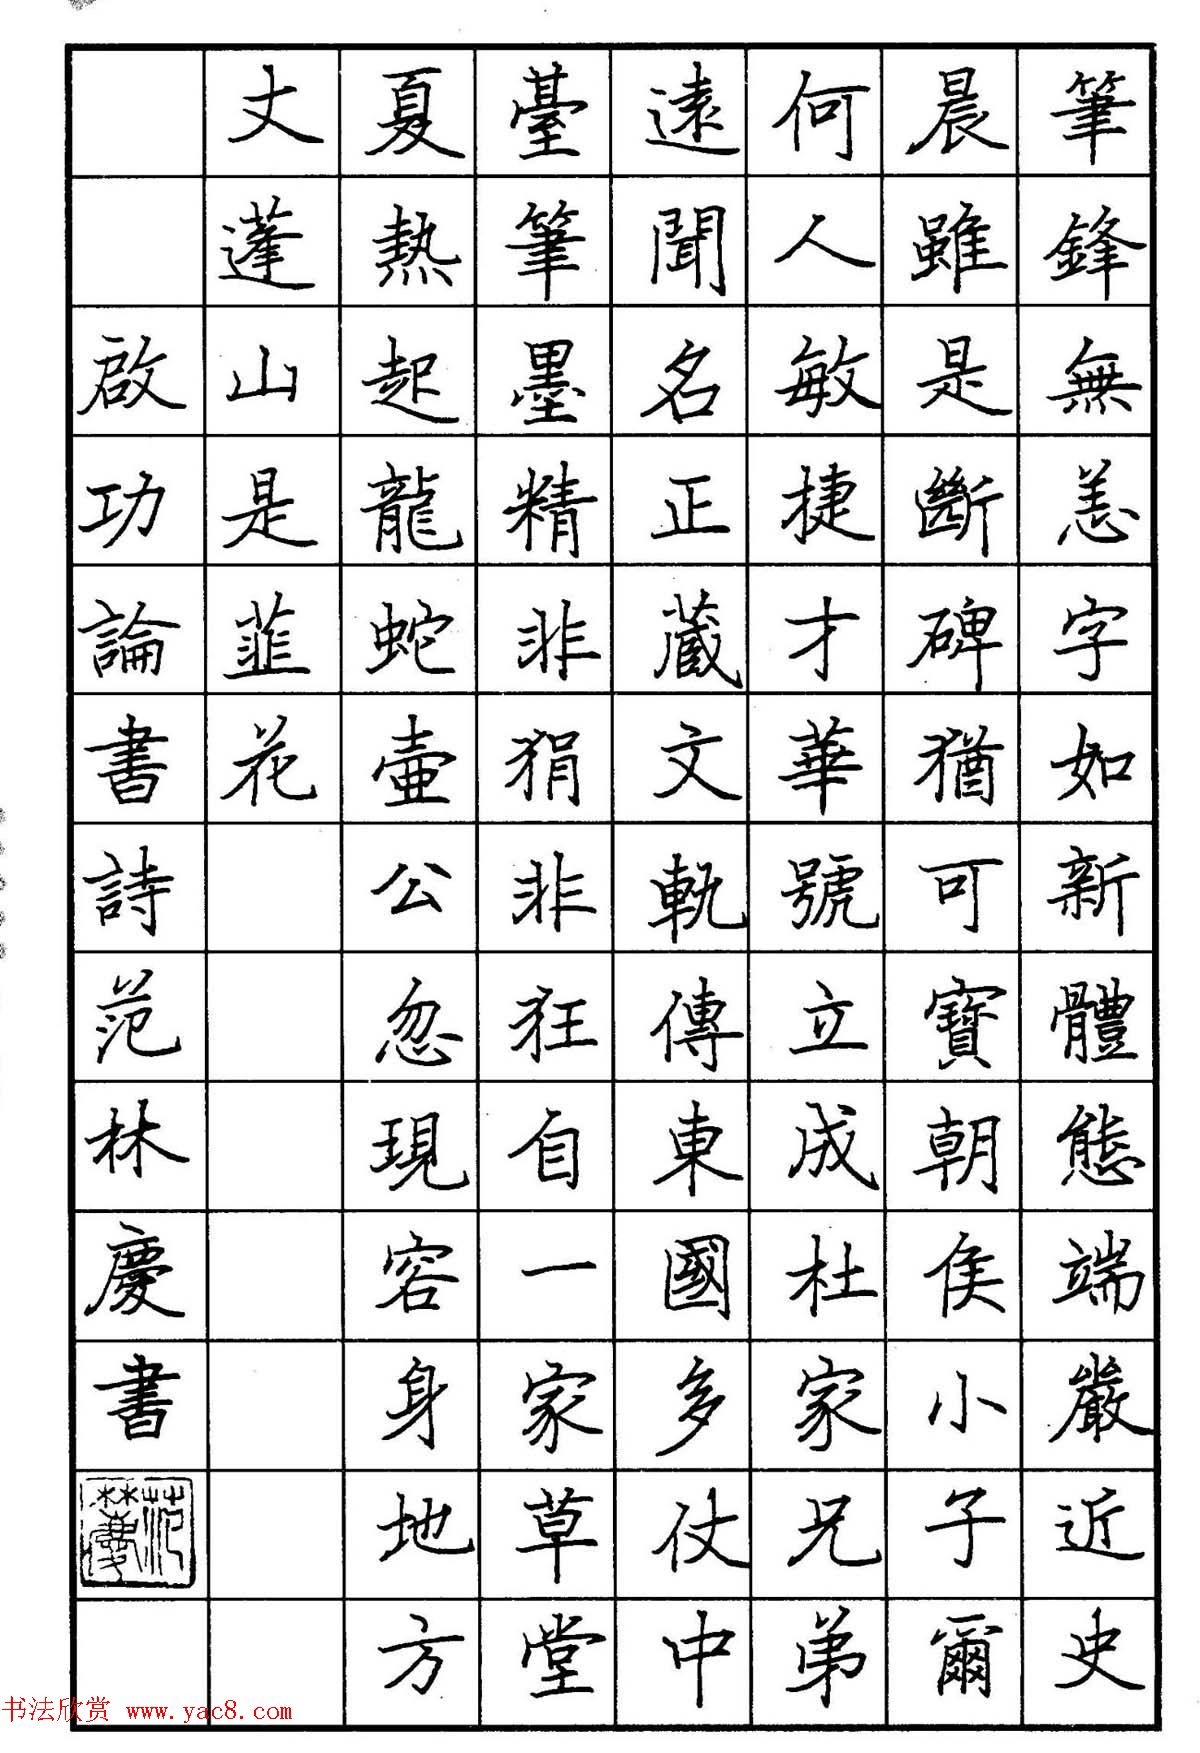 筆鋒無恙字如新體態端嚴近史
晨雖是斷碑猶可寶朝侯小子爾
何人敏捷才華號立成杜家兄弟
遠聞名正藏文軌傳東國多仗中
臺筆墨精非狷非狂自一家草堂
夏熱起龍蛇壺公忽現容身地方
丈蓬山是韮花
啟功論書詩范林慶書
范林慶
书法欣赏 www.yac8.com